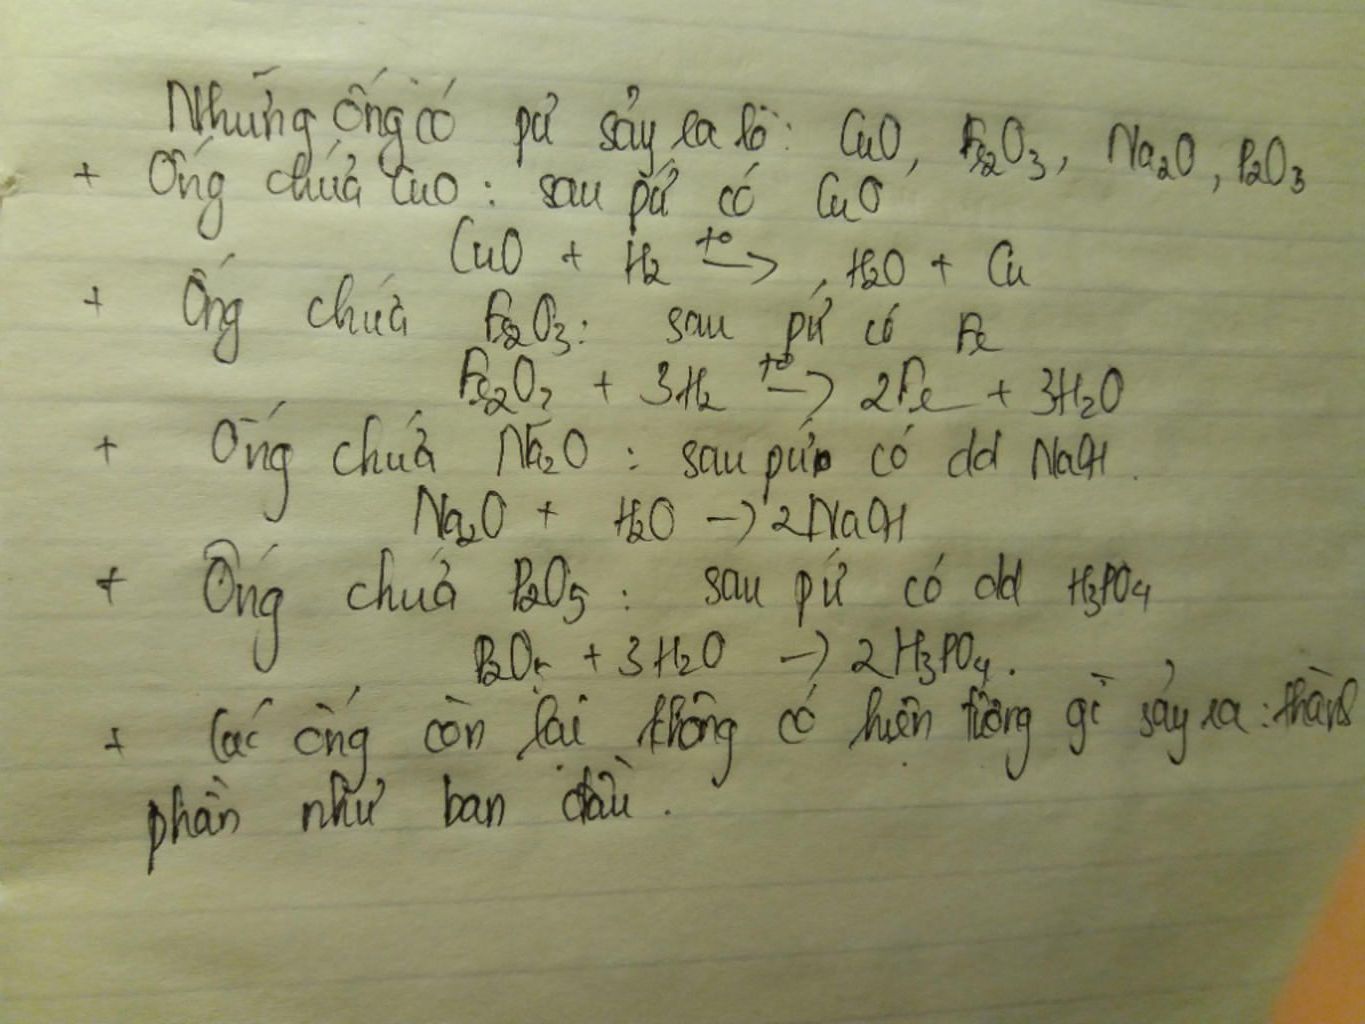 Những ống có pứ sảy ra là: CuO, Fe2O3, Na2O, P2O3
+ Ống chứa CuO: sau pứ có CuO
CuO + H2 t°→ H2O + Cu
+ Ống chứa Fe2O3: sau pứ có Fe
Fe2O3 + 3H2 t°→ 2Fe + 3H2O
+ Ống chứa Na2O: sau pứ có dd NaOH.
Na2O + H2O → 2NaOH
+ Ống chứa P2O5: sau pứ có dd H3PO4
P2O5 + 3H2O → 2H3PO4.
+ Các ống còn lại không có hiện tượng gì sảy ra: thành
phần như ban đầu.